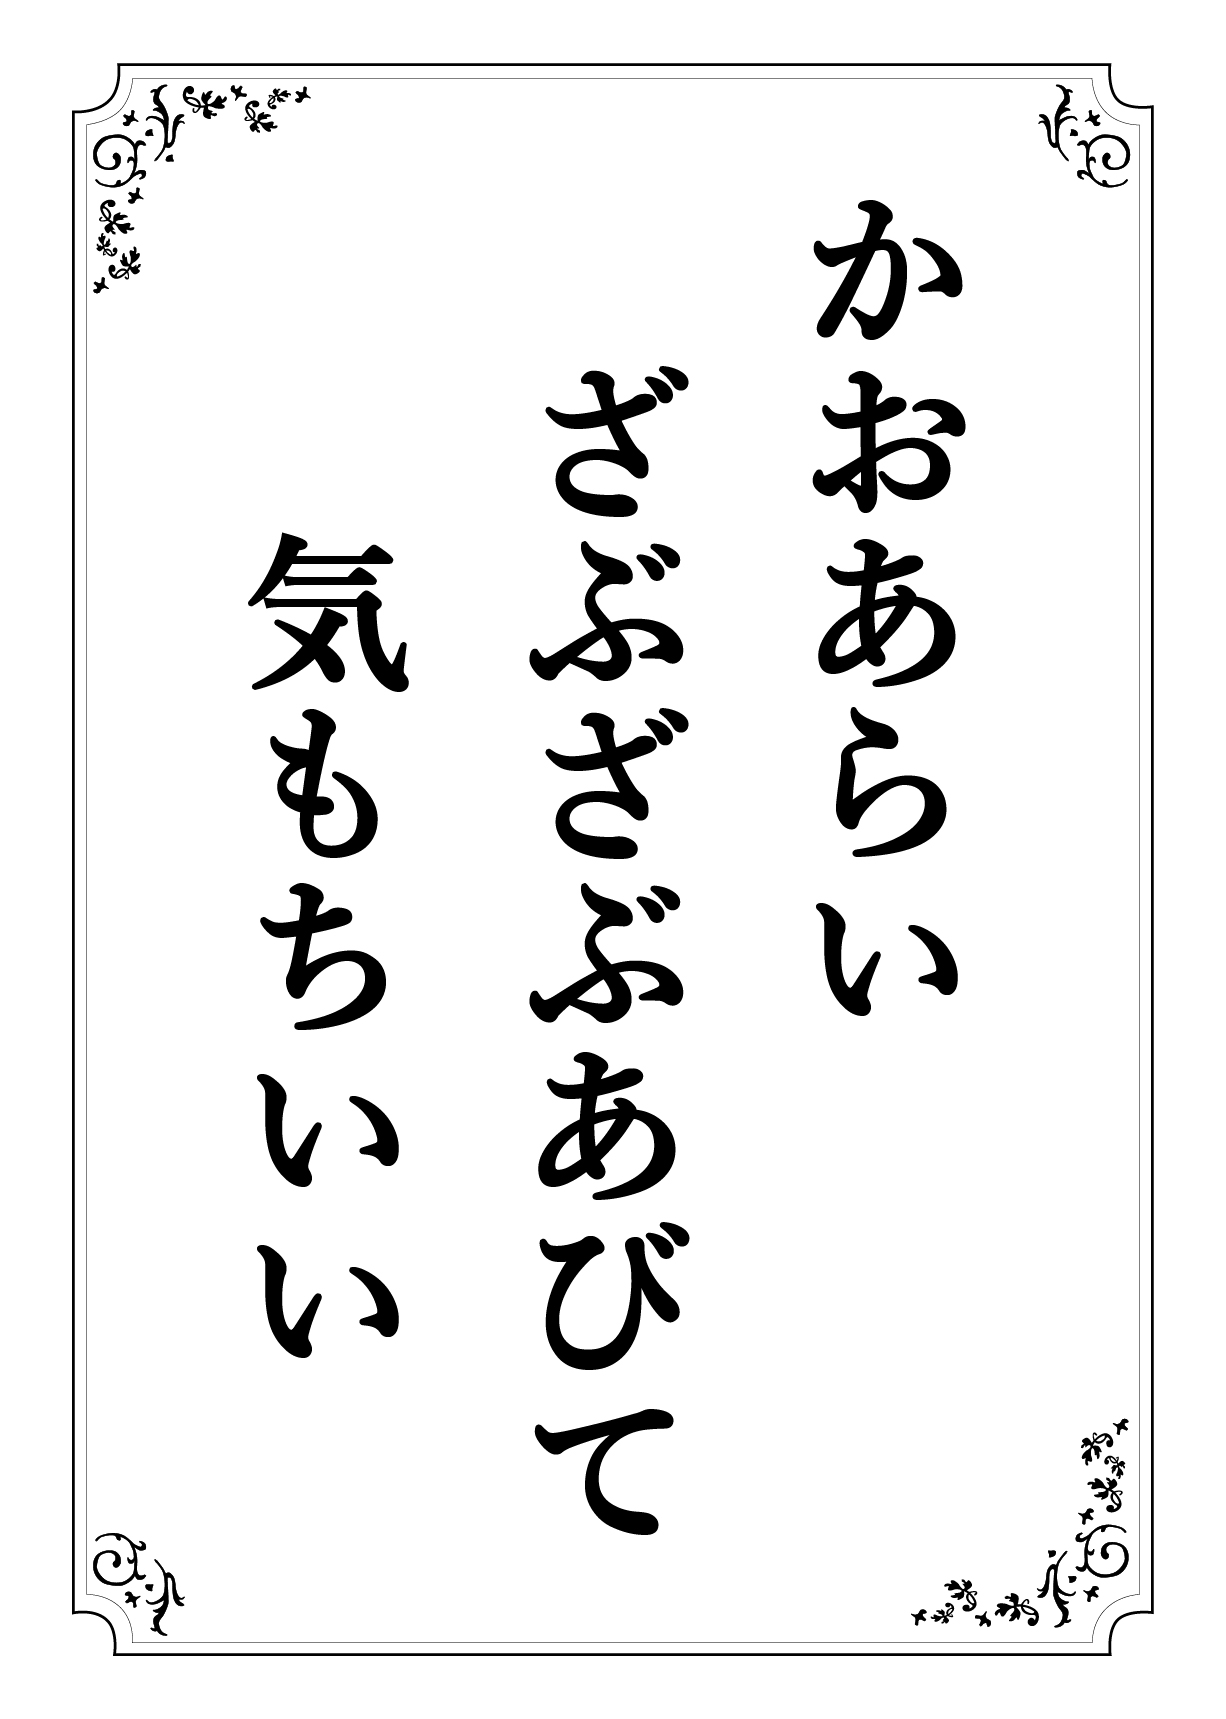 かおあらい
ざぶざぶあびて
気もちいい